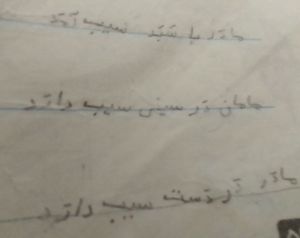 مادر با سبد سیب آمد
مامان در سینی سیب دارد
مادر در دست سیب دارد